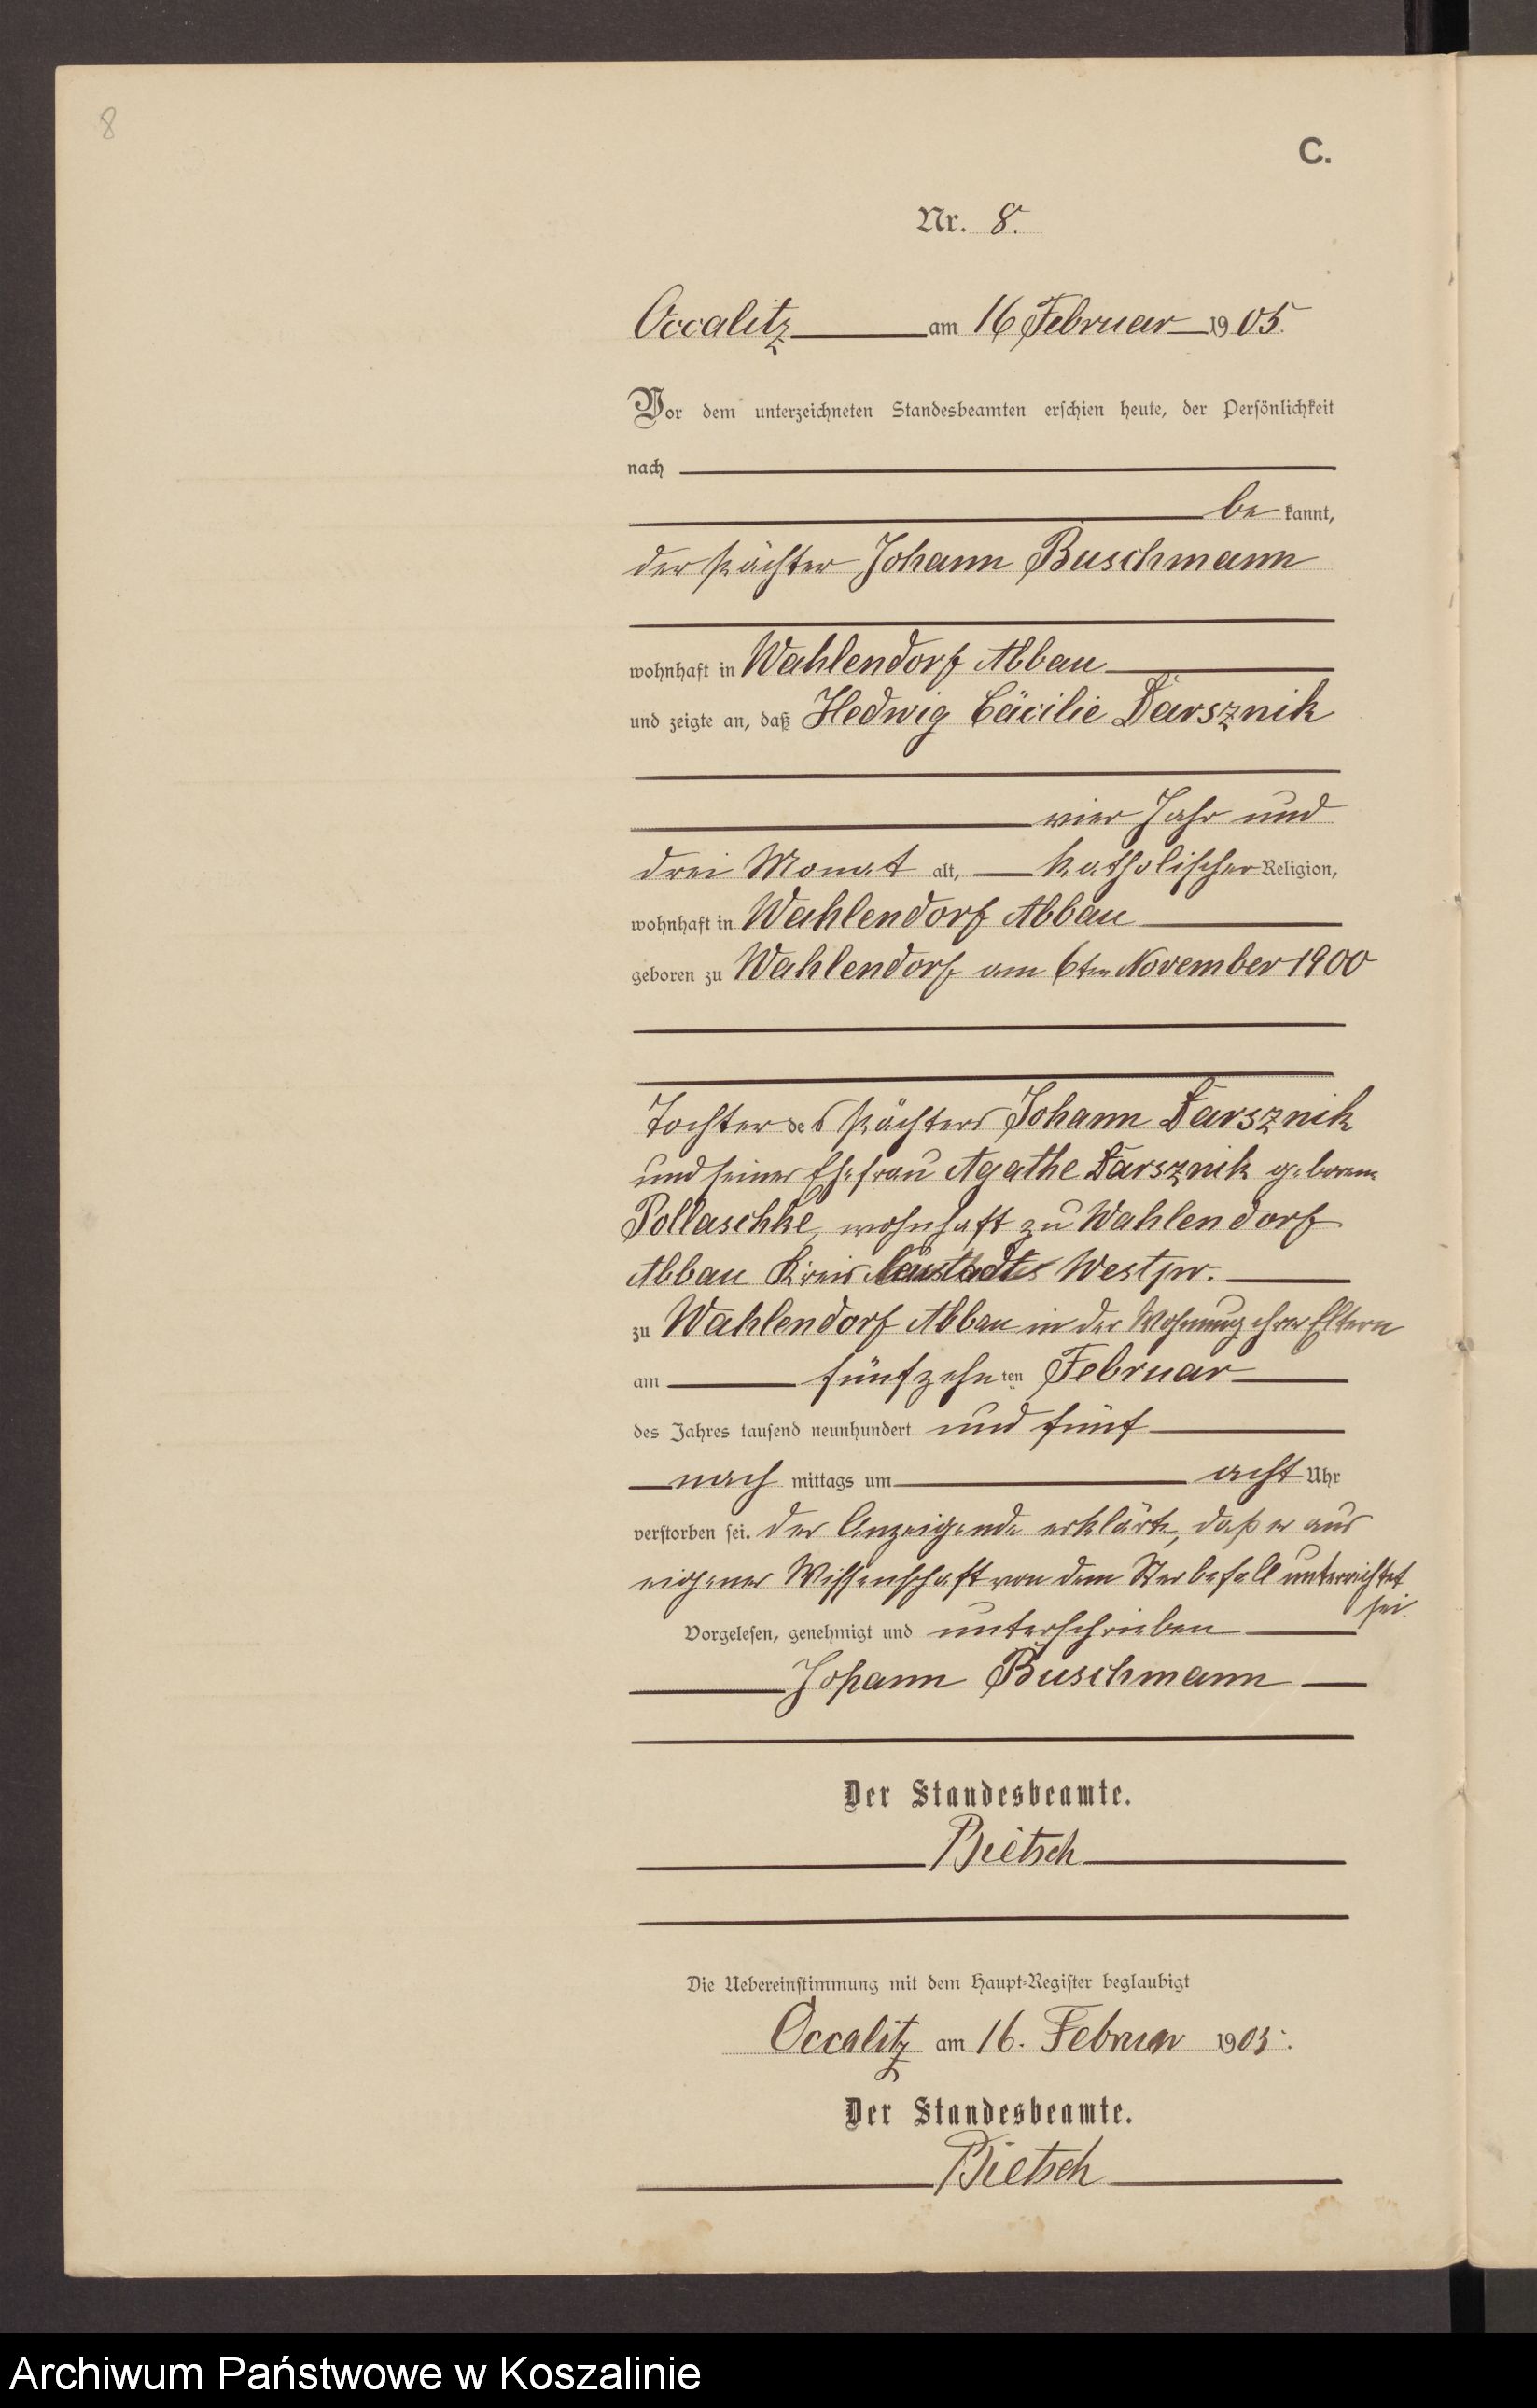 8
C.
Nr. 8.
Occalitz am 16 Februar 1905.
Vor dem unterzeichneten Standesbeamten erschien heute, der Persönlichkeit
nach
be kannt,
der Pächter Johann Buschmann
wohnhaft in Wahlendorf Abbau
und zeigte an, daß Hedwig Cäcilie Darsznik
vier Jahr und
drei Monat alt, katholischer Religion,
wohnhaft in Wahlendorf Abbau
geboren zu Wahlendorf am 6ten November 1900
Tochter des Pächters Johann Darsznik
und seiner Ehefrau Agathe Darsznik geborene
Pollaschke, wohnhaft zu Wahlendorf
Abbau Kreis Neustadt Westpr.
zu Wahlendorf Abbau in der Wohnung ihrer Eltern
am fünfzehn ten Februar
des Jahres tausend neunhundert und fünf
nach mittags um acht Uhr
verstorben sei. Der Anzeigende erklärte, daß er aus
eigener Wissenschaft von dem Sterbefall unterrichtet
sei.
Vorgelesen, genehmigt und unterschrieben
Johann Buschmann
Der Standesbeamte.
Bietsch
Die Uebereinstimmung mit dem Haupt-Register beglaubigt
Occalitz am 16. Februar 1905.
Der Standesbeamte.
Bietsch
Archiwum Państwowe w Koszalinie